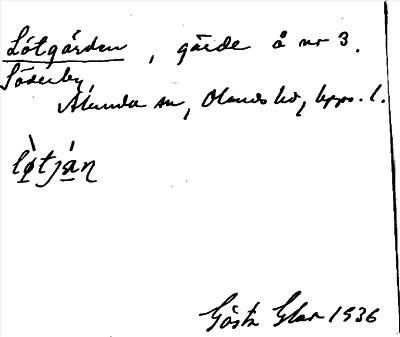 Lötgärden, gärde å nr 3.
Söderby,
Alunda sn, Olands hd, Upps. l.
lø̀tjáɳ
Gösta Glar 1936